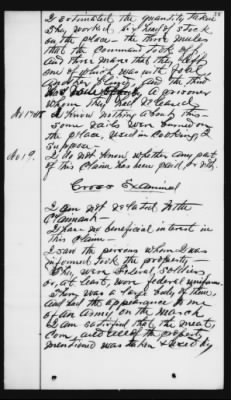 I estimated the quantity taken
They worked six head of stock
on the place — the three mules
that the command took off
And three mares that they left
one of which was with foal
another young and the third
whom they had released
No 17 &18 I know nothing about this —
some rails were burned on
the place, used in cooking, I
suppose —
No 19. I do not know whether any part
of this claim has been paid or not.
Cross Examined
I am not related to the
Claimant —
I have no beneficial interest in
this claim —
I saw the persons whom I was
informed took the property —
They were Federal soldiers
or, at least, wore federal uniforms.
There was a large body of them,
and had the appearance to me
of an army on the march
I am satisfied that the meat,
Corn, and all the property
mentioned was taken & used by